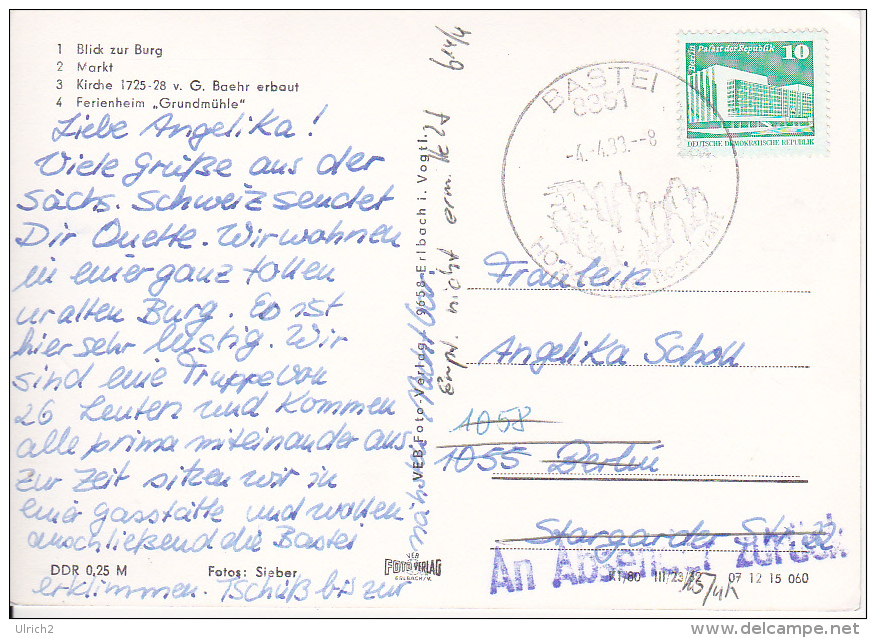 1 Blick zur Burg
2 Markt
3 Kirche 1725-28 v. G. Baehr erbaut
4 Ferienheim „Grundmühle"
Liebe Angelika!
Viele Grüße aus der
Sächs. Schweiz sendet
Dir Anette. Wir wohnen
in einer ganz tollen
uralten Burg. Es ist
hier sehr lustig. Wir
sind eine Truppe von
26 Leuten und kommen
alle prima miteinander aus.
Zur Zeit sitzen wir in
einer Gasstätte und wollen
anschließend die Bastei
erklimmen. Tschüß bis zur
nächsten
DDR 0,25 M
Fotos: Sieber
VEB Foto-Verlag 9658 Erlbach i. Vogtl.
Empf. nicht erm.
VEB
FOTO VERLAG
ERLBACH/V.
BASTEI
8351
-4.-4.83.-8
Berlin Palast der Republik
10
DEUTSCHE DEMOKRATISCHE REPUBLIK
Fräulein
Angelika Scholl
1058
1055 Berlin
Stargarder Str. 32
An Absender zurück
K1/80 III/23/32 07 12 15 060
15/4
Ulrich2